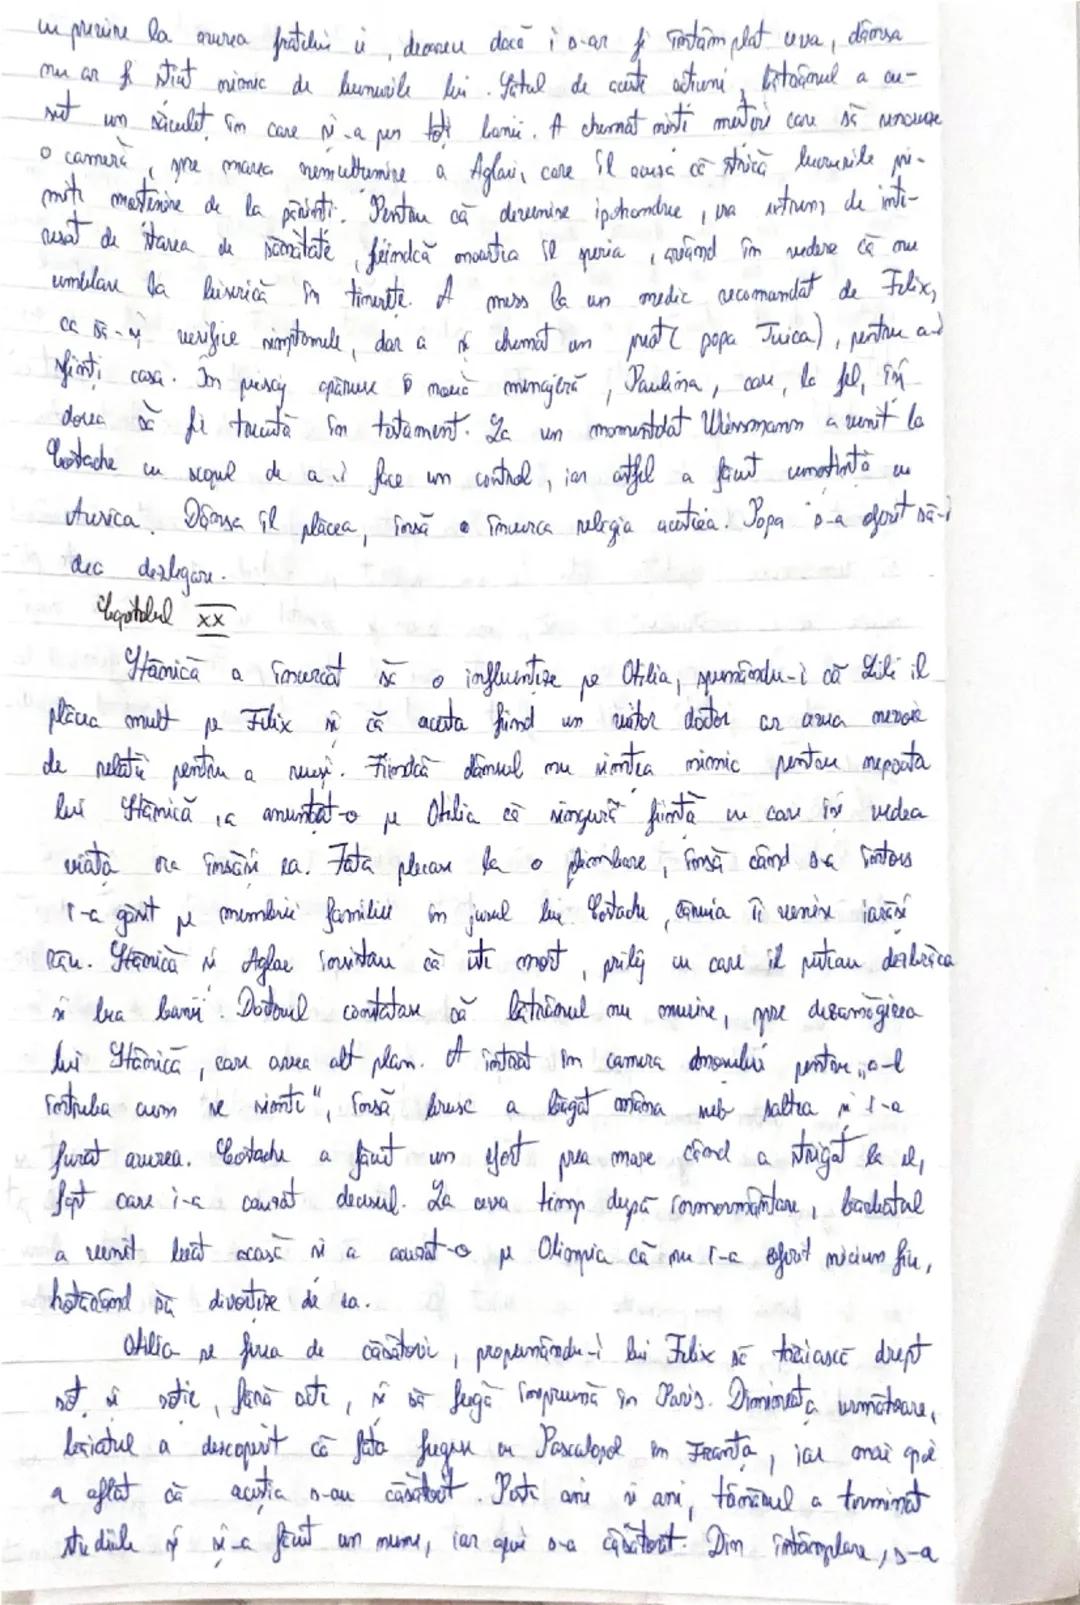 cu privire la averea fratelui ei, deoarece dacă i s-ar fi întâmplat ceva, dânsa
nu ar fi știut nimic de bunurile lui. Sătul de aceste acțiuni, bătrânul a cu-
sut un săculeț în care și-a pus toți banii. A chemat niște meșteri care să renoveze
o cameră, spre marea nemulțumire a Aglaei, care îl acuză că strică lucrurile pri-
mite moștenire de la părinți. Pentru că devenise ipohondru, era extrem de inte-
resat de starea de sănătate, fiindcă moartea îl speria, având în vedere că nu
umblase la biserică în tinerețe. A mers la un medic recomandat de Felix,
ca să-și verifice simptomele, dar a și chemat un preot (popa Țuica), pentru a-i
sfinți casa. În peisaj apăruse o nouă menajeră, Paulina, care, la fel, își
dorea să fie trecută în testament. La un momentdat Weissmann a venit la
Costache cu scopul de a-i face un control, iar astfel a făcut cunoștință cu
Aurica. Dânsa îl plăcea, însă o încurca religia acestuia. Popa s-a oferit să-i
dea dezlegare.
Capitolul XX
Stănică a încercat să o influențeze pe Otilia, spunându-i că Lili îl
plăcea mult pe Felix și că acesta fiind un viitor doctor ar avea nevoie
de relații pentru a reuși. Fiindcă dânsul nu simțea nimic pentru nepoata
lui Stănică, a anunțat-o pe Otilia că singură ființă cu care își vedea
viața era însăși ea. Fata plecase la o plimbare, însă când s-a întors
i-a găsit pe membrii familiei în jurul lui Costache, căruia îi venise iarăși
rău. Stănică și Aglae insistau că este mort, prilej cu care îl puteau dezbrăca
și lua banii. Doctorul constatase că bătrânul nu murise, spre dezamăgirea
lui Stănică, care avea alt plan. A intrat în camera domnului pentru „a-l
întreba cum se simte", însă brusc a băgat mâna sub saltea și i-a
furat averea. Costache a făcut un efort prea mare când a strigat la el,
fapt care i-a cauzat decesul. La ceva timp după înmormântare, bărbatul
a venit beat acasă și a acuzat-o pe Olimpia că nu i-a oferit niciun fiu,
hotărând să divorțeze de ea.
Otilia se ferea de căsătorie, propunându-i lui Felix să trăiască drept
soț și soție, fără acte, și să fugă împreună în Paris. Dimineața următoare,
băiatul a descoperit că fata fugise cu Pascalopol în Franța, iar mai apoi
a aflat că aceștia s-au căsătorit. Peste ani și ani, tânărul a terminat
studiile și și-a făcut un nume, iar apoi s-a căsătorit. Din întâmplare, s-a